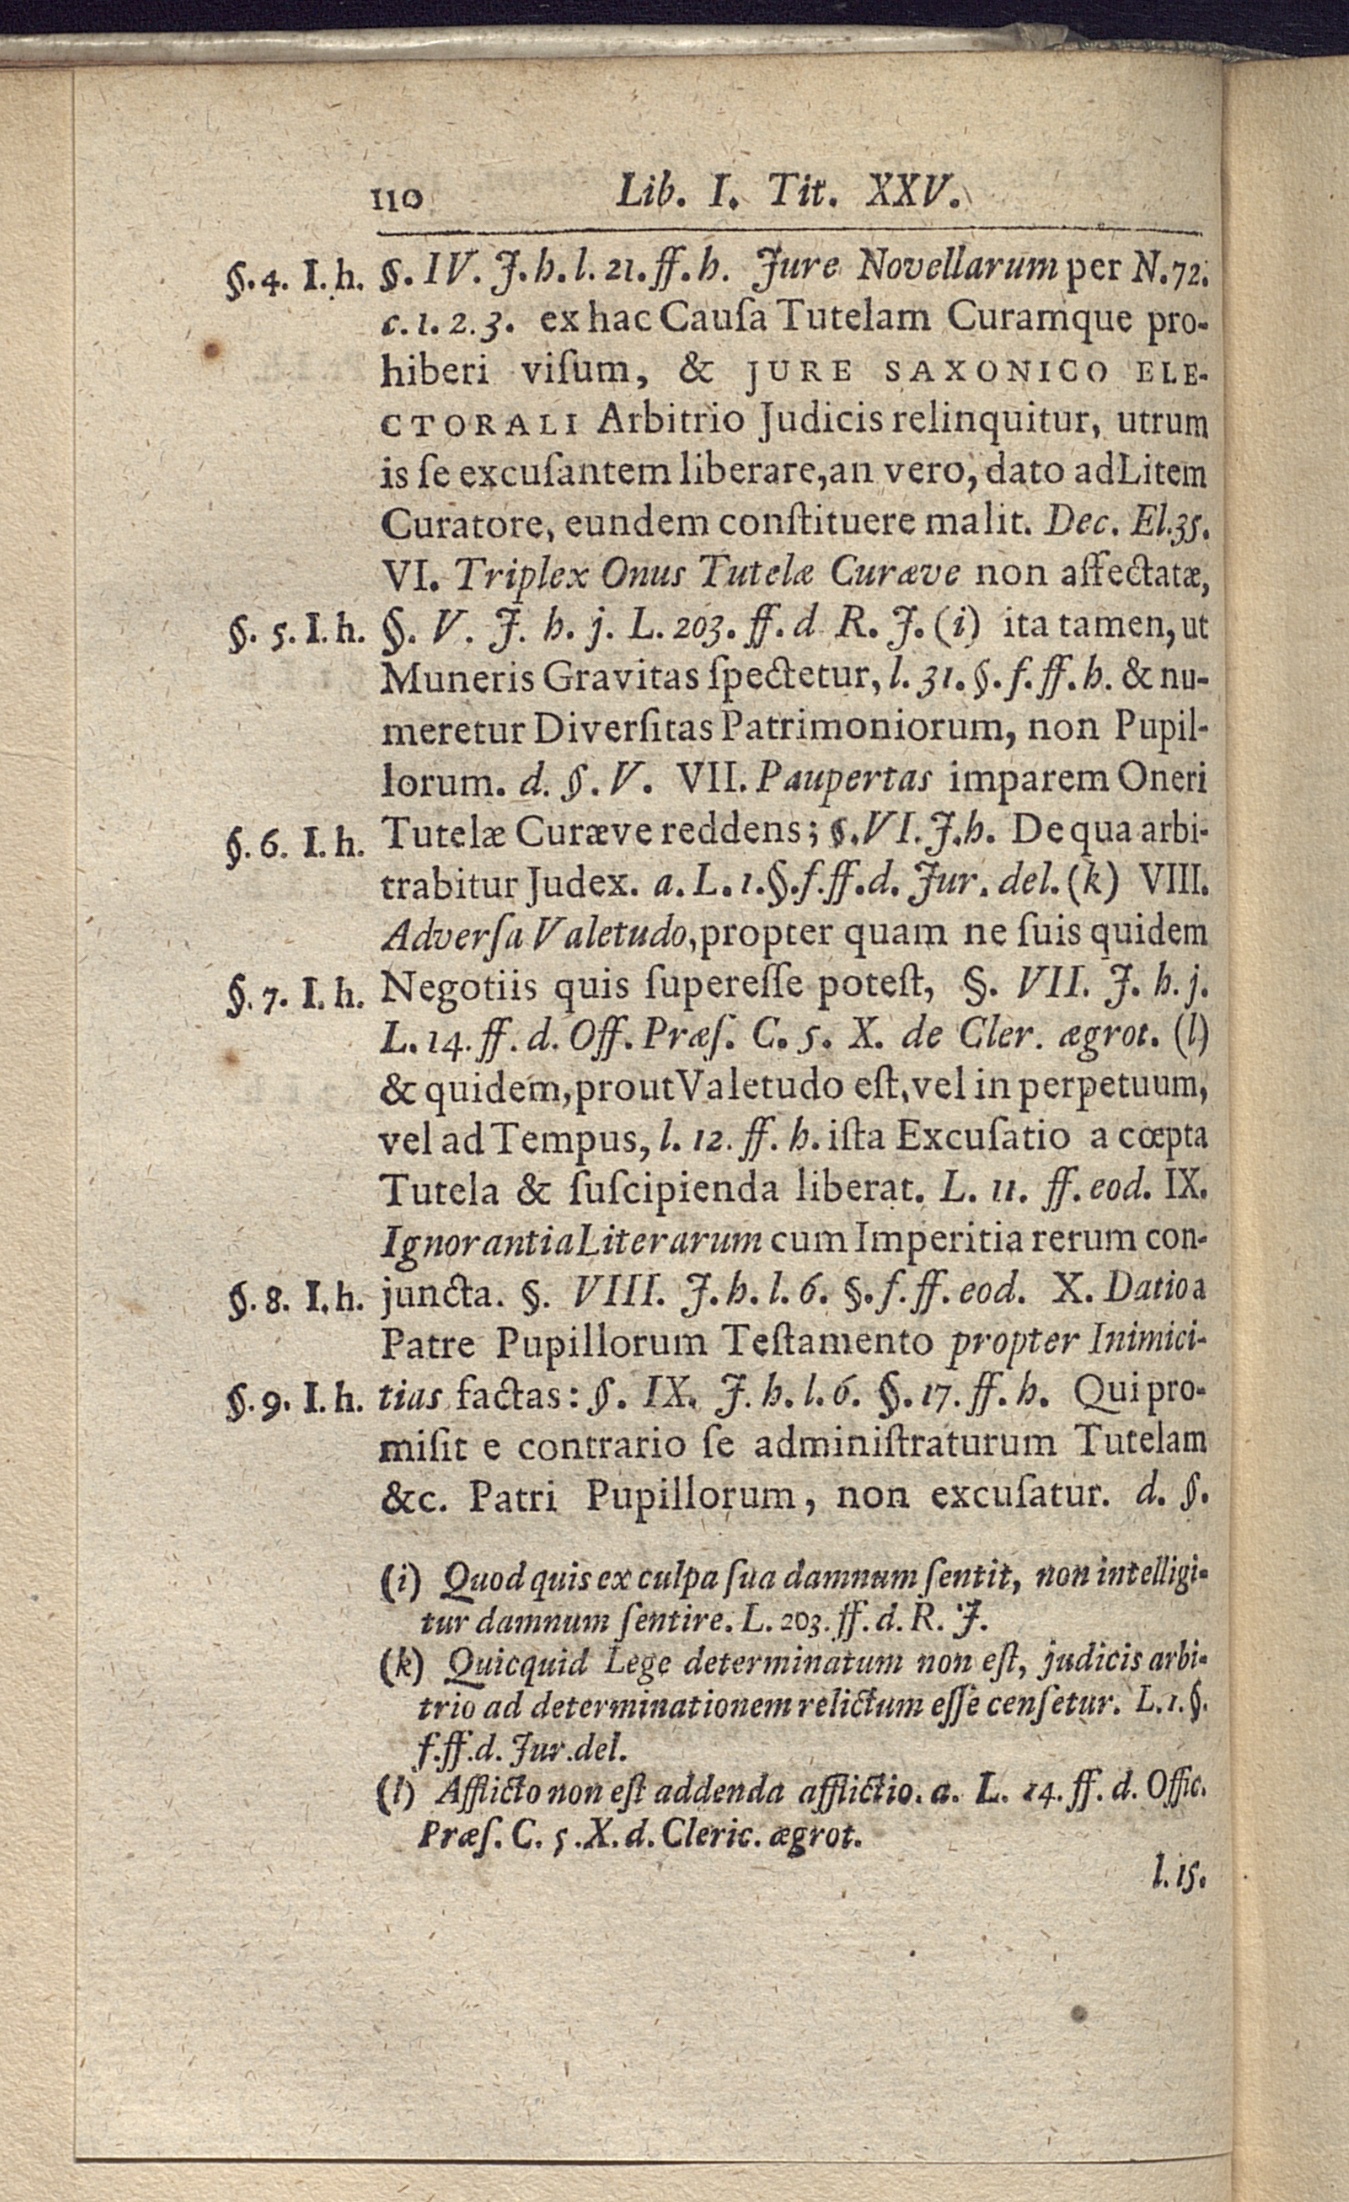 110 Lib. I. Tit. XXV.
§. 4. I. h. §. IV. J. h. l. 21. ff. h. Jure Novellarum per N. 72.
c. 1. 2. 3. ex hac Cauſa Tutelam Curamque pro-
hiberi viſum, & JURE SAXONICO ELE-
CTORALI Arbitrio Judicis relinquitur, utrum
is ſe excuſantem liberare, an vero, dato ad Litem
Curatore, eundem conſtituere malit. Dec. El. 35.
VI. Triplex Onus Tutelæ Curæve non affectatæ,
§. 5. I. h. §. V. J. h. j. L. 203. ff. d R. J. (i) ita tamen, ut
Muneris Gravitas ſpectetur, l. 31. §. f. ff. h. & nu-
meretur Diverſitas Patrimoniorum, non Pupil-
lorum. d. §. V. VII. Paupertas imparem Oneri
§. 6. I. h. Tutelæ Curæve reddens; §. VI. J. h. De qua arbi-
trabitur Judex. a. L. 1. §. f. ff. d. Jur. del. (k) VIII.
Adverſa Valetudo, propter quam ne ſuis quidem
§. 7. I. h. Negotiis quis ſupereſſe poteſt, §. VII. J. h. j.
L. 14. ff. d. Off. Præſ. C. 5. X. de Cler. ægrot. (l)
& quidem, prout Valetudo eſt, vel in perpetuum,
vel ad Tempus, l. 12. ff. h. iſta Excuſatio a cœpta
Tutela & ſuſcipienda liberat. L. 11. ff. eod. IX.
Ignorantia Literarum cum Imperitia rerum con-
§. 8. I. h. juncta. §. VIII. J. h. l. 6. §. f. ff. eod. X. Datio a
Patre Pupillorum Teſtamento propter Inimici-
§. 9. I. h. tias factas: §. IX. J. h. l. 6. §. 17. ff. h. Qui pro-
miſit e contrario ſe adminiſtraturum Tutelam
&c. Patri Pupillorum, non excuſatur. d. §.
(i) Quod quis ex culpa ſua damnum ſentit, non intelligi-
tur damnum ſentire. L. 203. ff. d. R. J.
(k) Quicquid Lege determinatum non eſt, judicis arbi-
trio ad determinationem relictum eſſe cenſetur. L. 1. §.
f. ff. d. Jur. del.
(l) Afflicto non eſt addenda afflictio. a. L. 14. ff. d. Offic.
Præſ. C. 5. X. d. Cleric. ægrot.
l. 15.